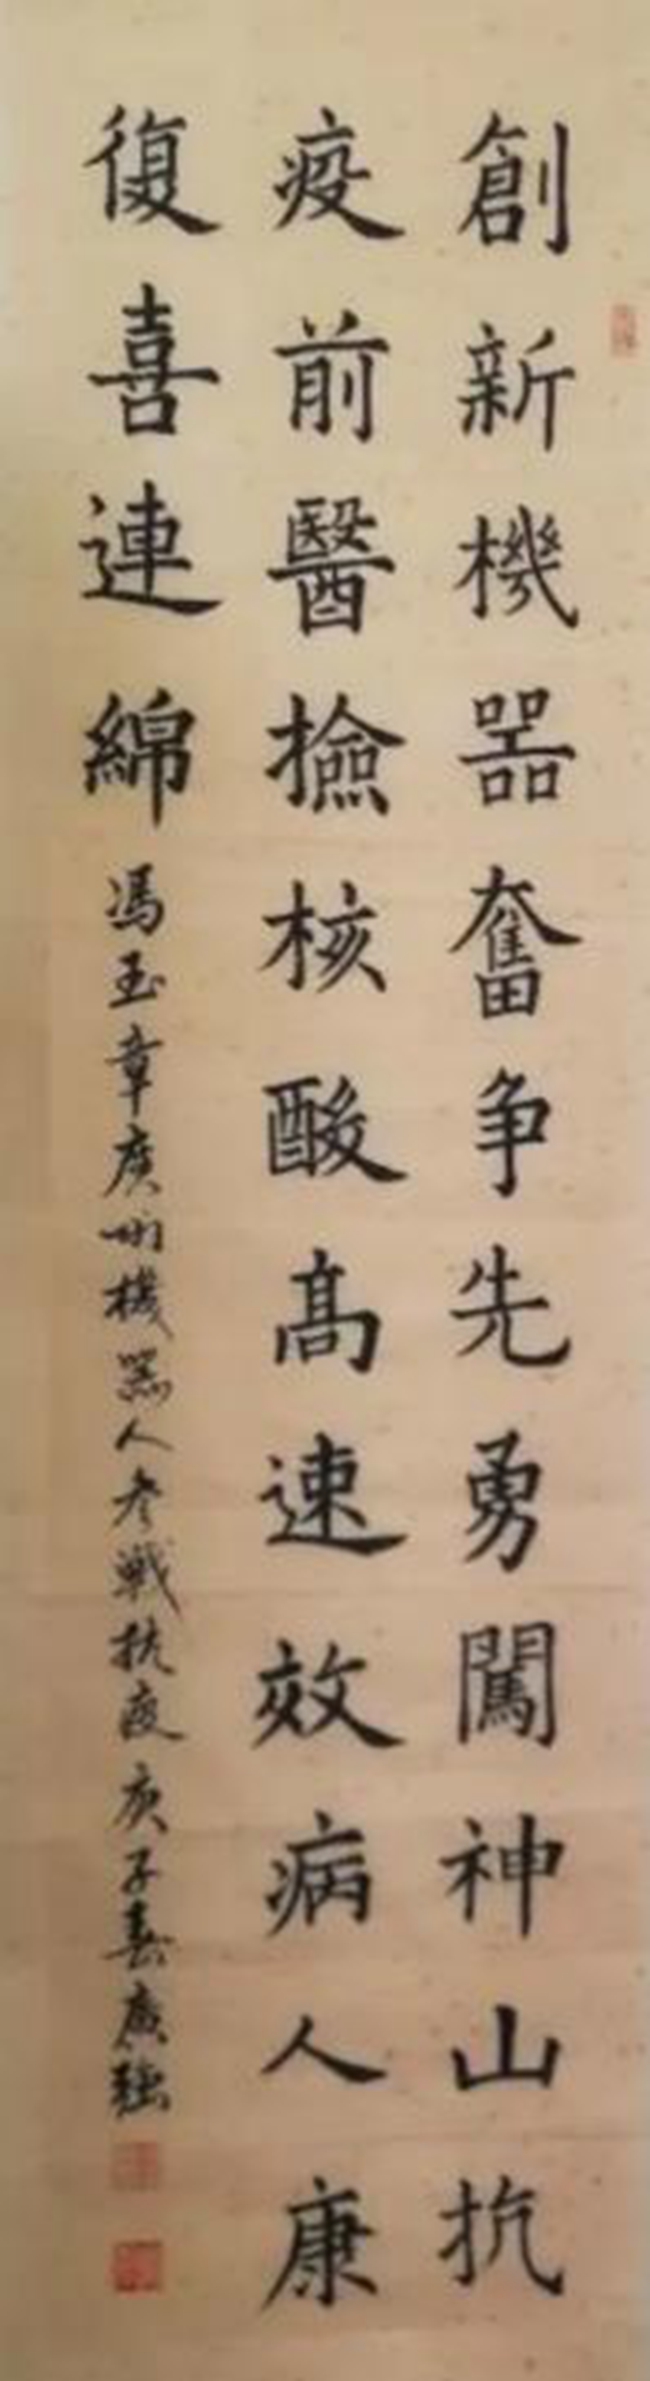 創新機器奮争先勇闖神山抗
疫前醫撿核酸高速效病人康
復喜連綿
馮玉章廣州機器人参戰抗疫庚子春廣強